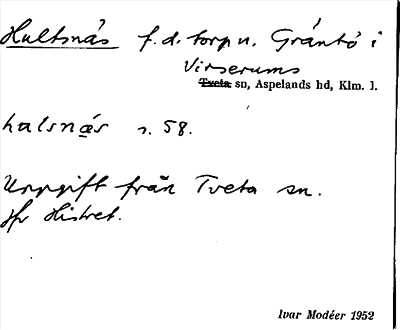 Hultsnäs f.d. torp u. Gräntö i
Virserums
Tveta sn, Aspelands hd, Klm. l.
halsnäs s. 58.
Uppgift från Tveta sn.
Jfr Histret.
Ivar Modéer 1952